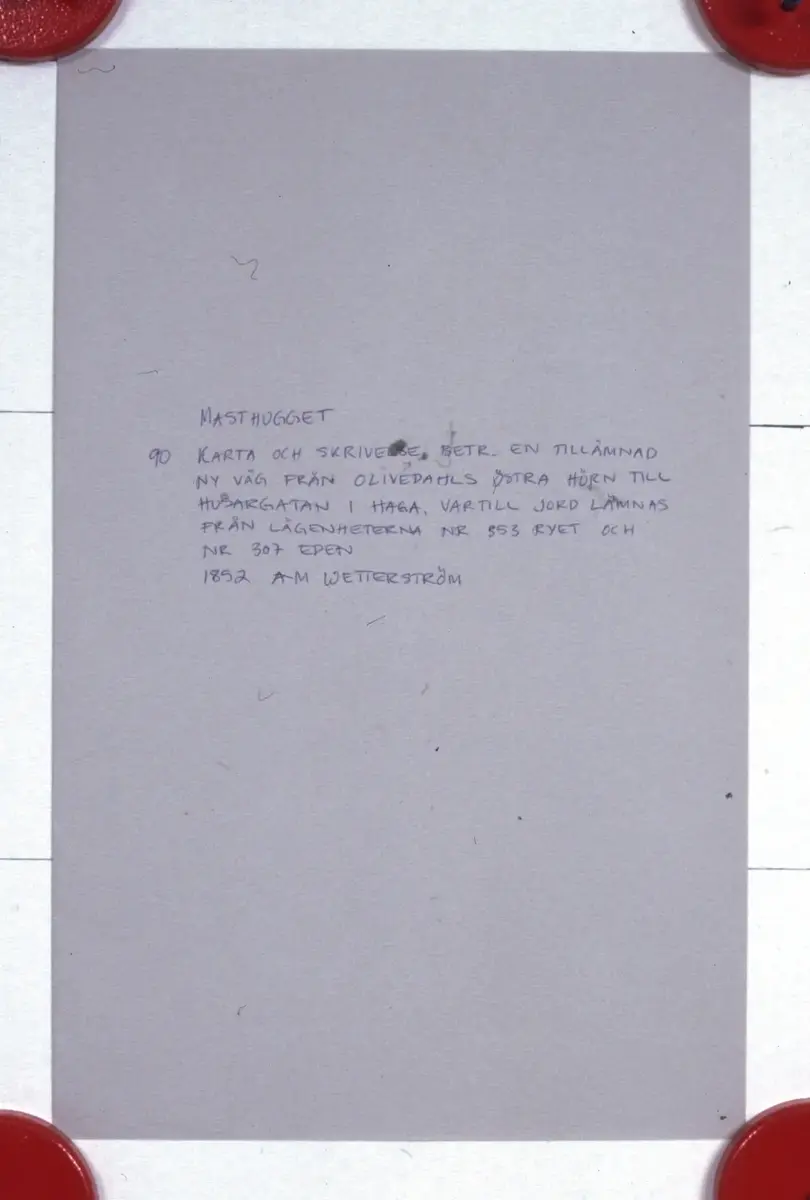 MASTHUGGET
90 KARTA OCH SKRIVELSE, BETR. EN TILLÄMNAD
NY VÄG FRÅN OLIVEDAHLS ÖSTRA HÖRN TILL
HUSARGATAN I HAGA, VARTILL JORD LÄMNAS
FRÅN LÄGENHETERNA NR 353 RYET OCH
NR 307 EDEN
1852 A-M WETTERSTRÖM